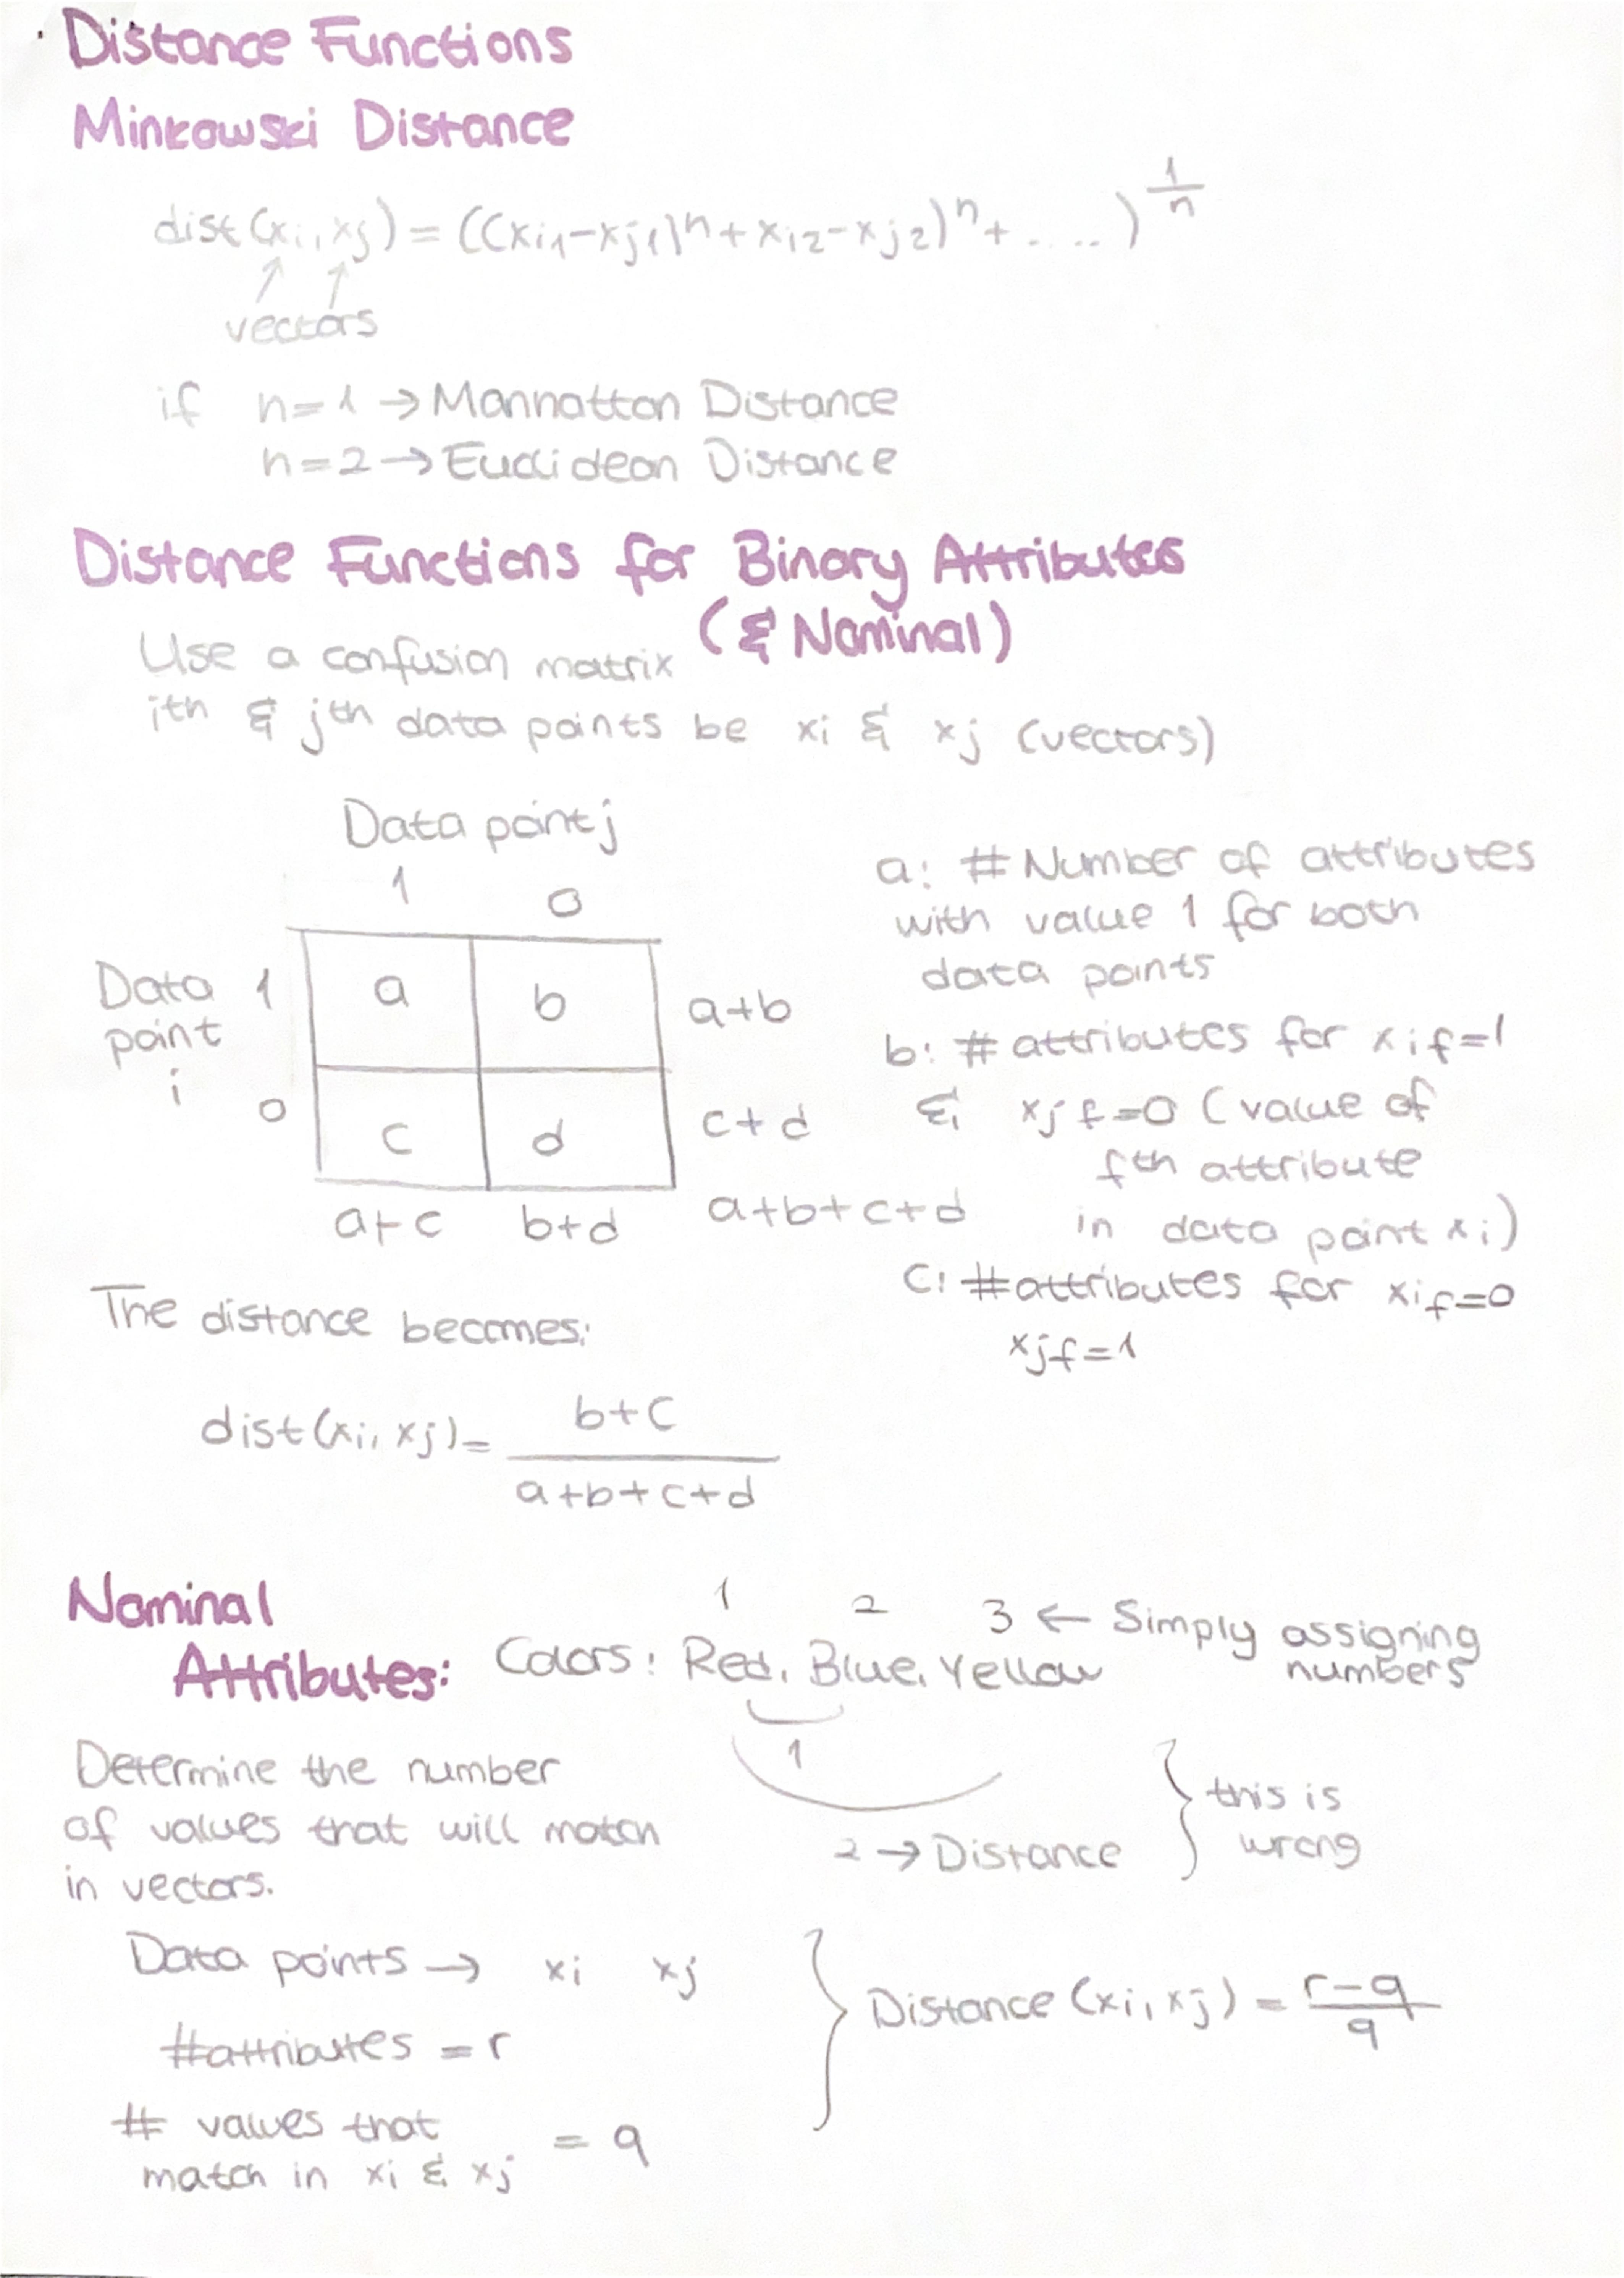 · Distance Functions
Minkowski Distance
dist(xi, xj) = ((xi1-xj1)^n + xi2-xj2)^n + .....)^1/n
↗ ↑
vectors
if n=1 → Manhattan Distance
n=2 → Euclidean Distance
Distance Functions for Binary Attributes
(& Nominal)
Use a confusion matrix
ith & jth data points be xi & xj (vectors)
Data point j
1 0
Data 1 a b a+b
point
i
0 c d c+d
a+c b+d a+b+c+d
a: # Number of attributes
with value 1 for both
data points
b: # attributes for xif=1
& xjf=0 (value of
fth attribute
in data point xi)
c: #attributes for xif=0
xjf=1
The distance becomes:
dist(xi, xj) =
b+c
a+b+c+d
Nominal
Attributes:
1 2 3 ← Simply assigning
numbers
Colors: Red, Blue, Yellow
1
2 → Distance
} this is
wrong
Determine the number
of values that will match
in vectors.
Data points → xi xj
#attributes = r
# values that
match in xi & xj = q
} Distance (xi, xj) =
r-q
q